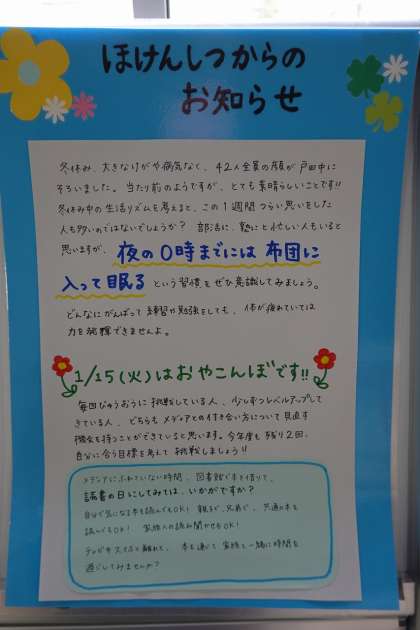 ほけんしつからの
お知らせ
冬休み、大きなけがや病気なく、42人全員の顔が戸田中に
そろいました。当たり前のようですが、とても素晴らしいことです!!
冬休み中の生活リズムを考えると、この1週間つらい思いをした
人も多いのではないでしょうか? 部活に、塾にと忙しい人もいると
思いますが、夜の0時までには布団に
入って眠るという習慣をぜひ意識してみましょう。
どんなにがんばって練習や勉強をしても、体が疲れていては
力を発揮できませんよ。
1/15(火)はおやこんぼです!!
毎回じゅうおうに挑戦している人、少しずつレベルアップして
きている人、どちらもメディアとの付き合い方について見直す
機会を持つことができていると思います。今年度も残り2回、
自分に合う目標を考えて挑戦しましょう!!
メディアにふれていない時間、図書館で本を借りて、
読書の日にしてみては、いかがですか?
自分で気になる本を読んでもOK! 親子で、兄弟で、共通の本を
読んでもOK! 家族への読み聞かせもOK!
テレビやスマホと離れて、本を通じて家族と一緒に時間を
過ごしてみませんか?